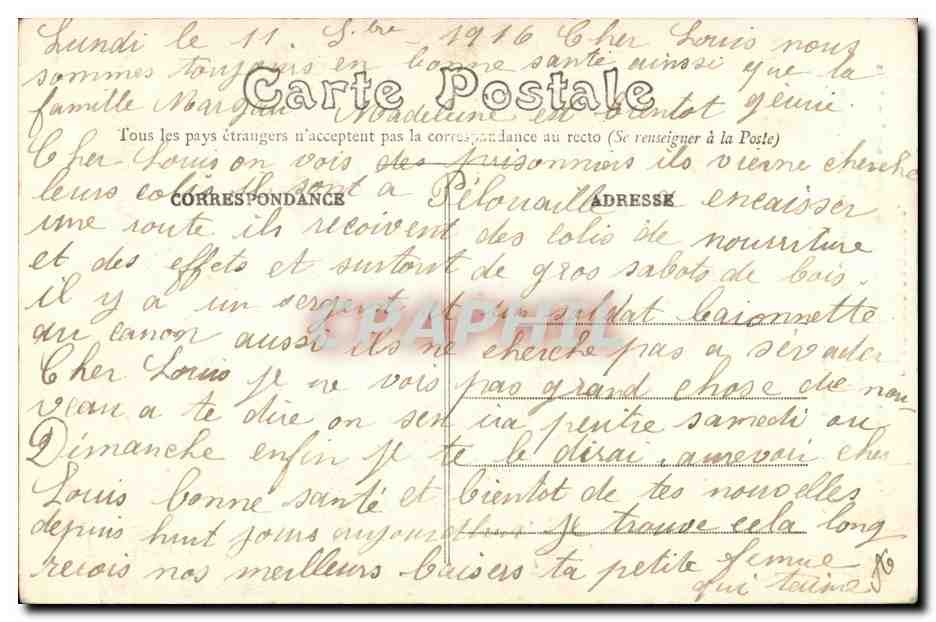 Lundi le 11 Sbre 1916 Cher Louis nous
sommes toujours en bonne santé ainssi que la
Carte Postale
famille Margau Madeleine est bientot guérie.
Tous les pays étrangers n'acceptent pas la correspondance au recto (Se renseigner à la Poste)
Cher Louis on vois des prisonniers ils vienne cherche
leurs colis il sont a Pélouaille a encaisser
CORRESPONDANCE ADRESSE
une route ils recoivent des colis de nourriture
et des effets et surtout de gros sabots de bois.
il y a un sergent et un soldat baionnette
CPAPHIL
au canon aussi ils ne cherche pas a sévader
Cher Louis je ne vois pas grand chose de nou-
veau a te dire on sen ira peutre samedi ou
Dimanche enfin je te le dirai, aurevoir cher
Louis bonne santé et bientot de tes nouvelles
depuis huit jours aujourdhui je trouve cela long
recois nos meilleurs baisers ta petite femme
qui taime